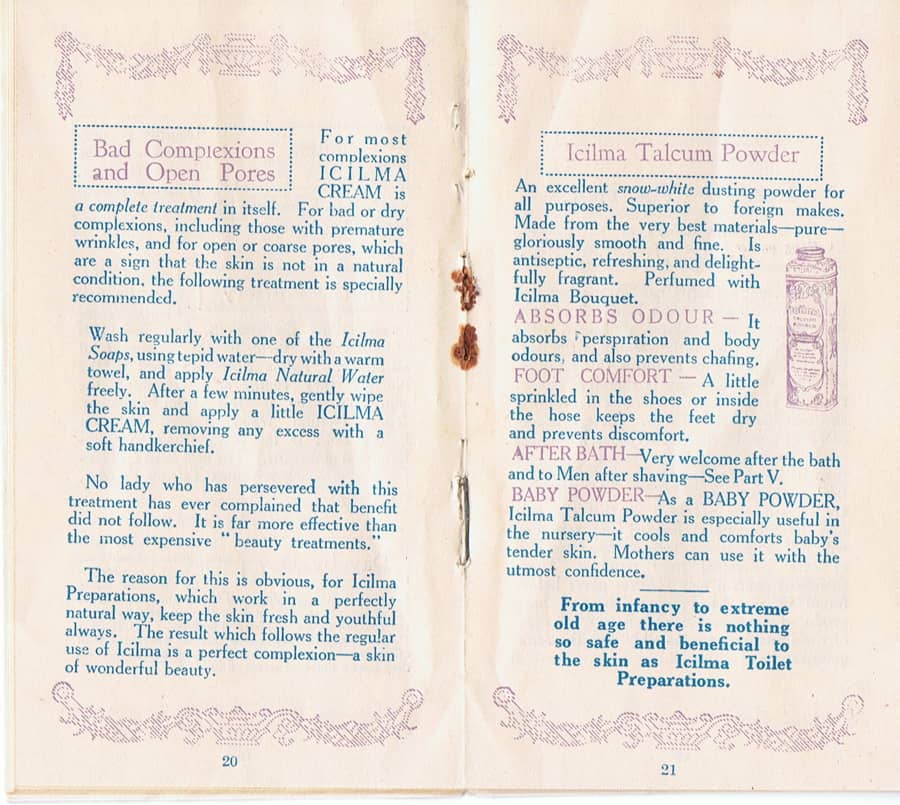 Bad Complexions
and Open Pores
For most
complexions
ICILMA
CREAM is
a complete treatment in itself. For bad or dry
complexions, including those with premature
wrinkles, and for open or coarse pores, which
are a sign that the skin is not in a natural
condition, the following treatment is specially
recommended.
Wash regularly with one of the Icilma
Soaps, using tepid water—dry with a warm
towel, and apply Icilma Natural Water
freely. After a few minutes, gently wipe
the skin and apply a little ICILMA
CREAM, removing any excess with a
soft handkerchief.
No lady who has persevered with this
treatment has ever complained that benefit
did not follow. It is far more effective than
the most expensive "beauty treatments."
The reason for this is obvious, for Icilma
Preparations, which work in a perfectly
natural way, keep the skin fresh and youthful
always. The result which follows the regular
use of Icilma is a perfect complexion—a skin
of wonderful beauty.
20
Icilma Talcum Powder
An excellent snow-white dusting powder for
all purposes. Superior to foreign makes.
Made from the very best materials—pure—
gloriously smooth and fine. Is
antiseptic, refreshing, and delight-
fully fragrant. Perfumed with
Icilma Bouquet.
ABSORBS ODOUR — It
absorbs perspiration and body
odours, and also prevents chafing.
FOOT COMFORT — A little
sprinkled in the shoes or inside
the hose keeps the feet dry
and prevents discomfort.
AFTER BATH—Very welcome after the bath
and to Men after shaving—See Part V.
BABY POWDER—As a BABY POWDER,
Icilma Talcum Powder is especially useful in
the nursery—it cools and comforts baby's
tender skin. Mothers can use it with the
utmost confidence.
From infancy to extreme
old age there is nothing
so safe and beneficial to
the skin as Icilma Toilet
Preparations.
21